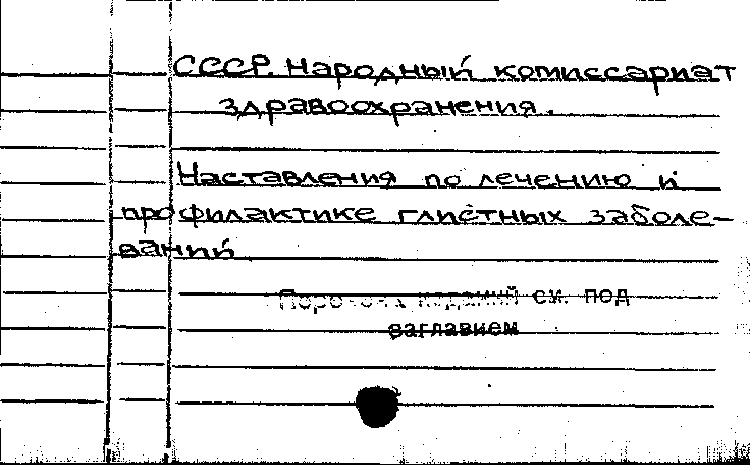 СССР. Народный комиссариат
здравоохранения.
Наставления по лечению и
профилактике глистных заболе-
ваний
Перечень изданий см. под
заглавием